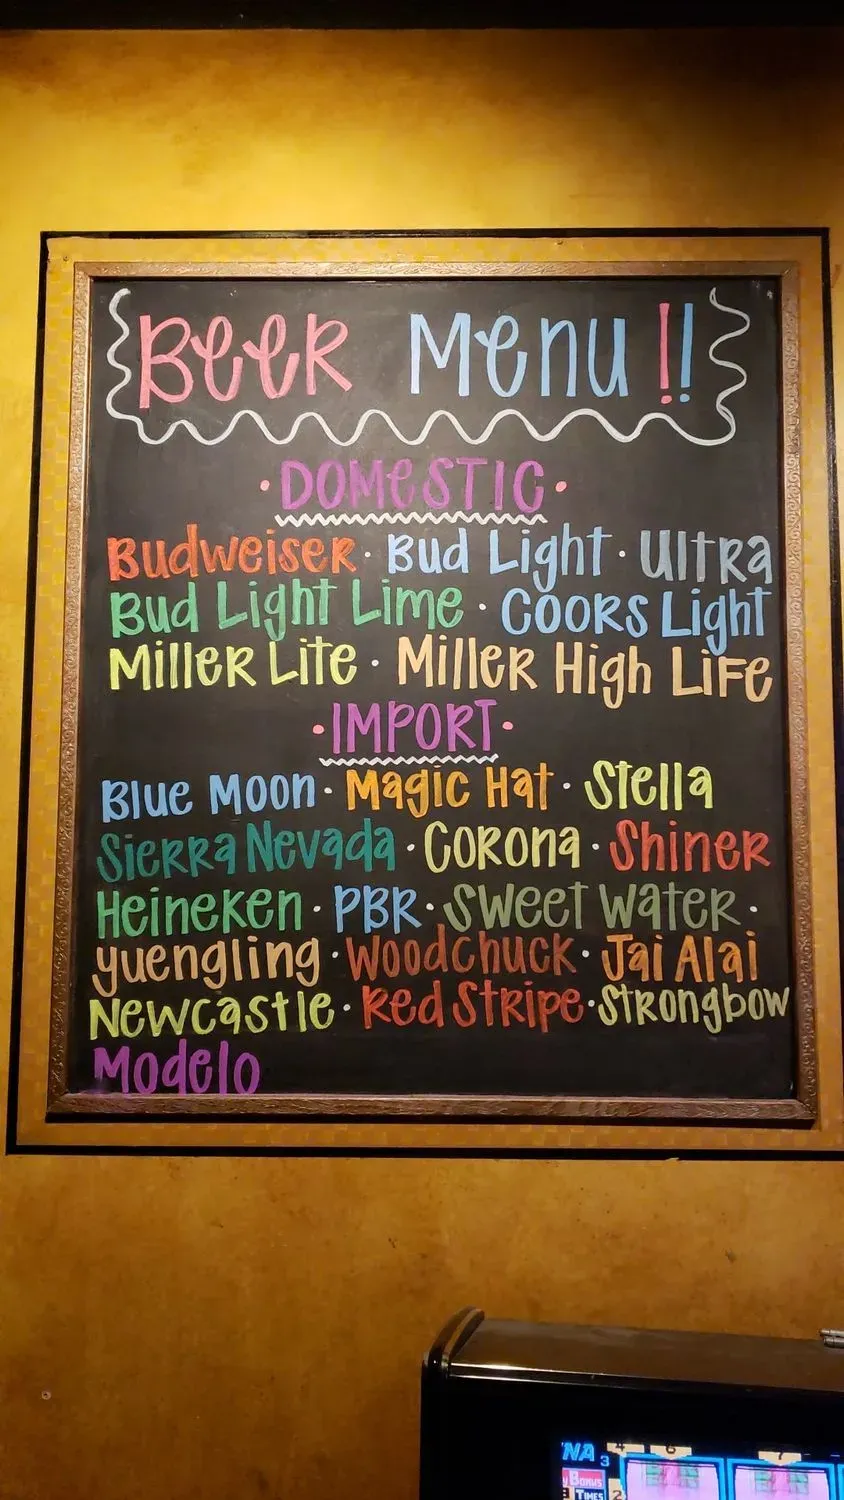 Beer Menu!!
·DOMESTIC·
Budweiser · Bud Light · Ultra
Bud Light Lime · Coors Light
Miller Lite · Miller High Life
·IMPORT·
Blue Moon · Magic Hat · Stella
Sierra Nevada · Corona · Shiner
Heineken · PBR · Sweet Water ·
yuengling · Woodchuck · Jai Alai
Newcastle · Red Stripe · Strongbow
Modelo
3
Times
2